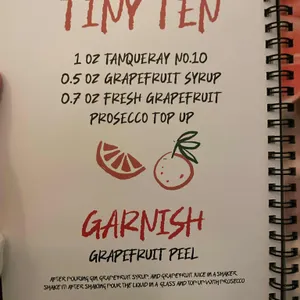 TINY TEN
1 OZ TANQUERAY NO.10
0.5 OZ GRAPEFRUIT SYRUP
0.7 OZ FRESH GRAPEFRUIT
PROSECCO TOP UP
GARNISH
GRAPEFRUIT PEEL
AFTER POURING GIN, GRAPEFRUIT SYRUP AND GRAPEFRUIT JUICE IN A SHAKER,
SHAKE IT! AFTER SHAKING POUR THE LIQUID IN A GLASS AND TOP UP WITH PROSECCO